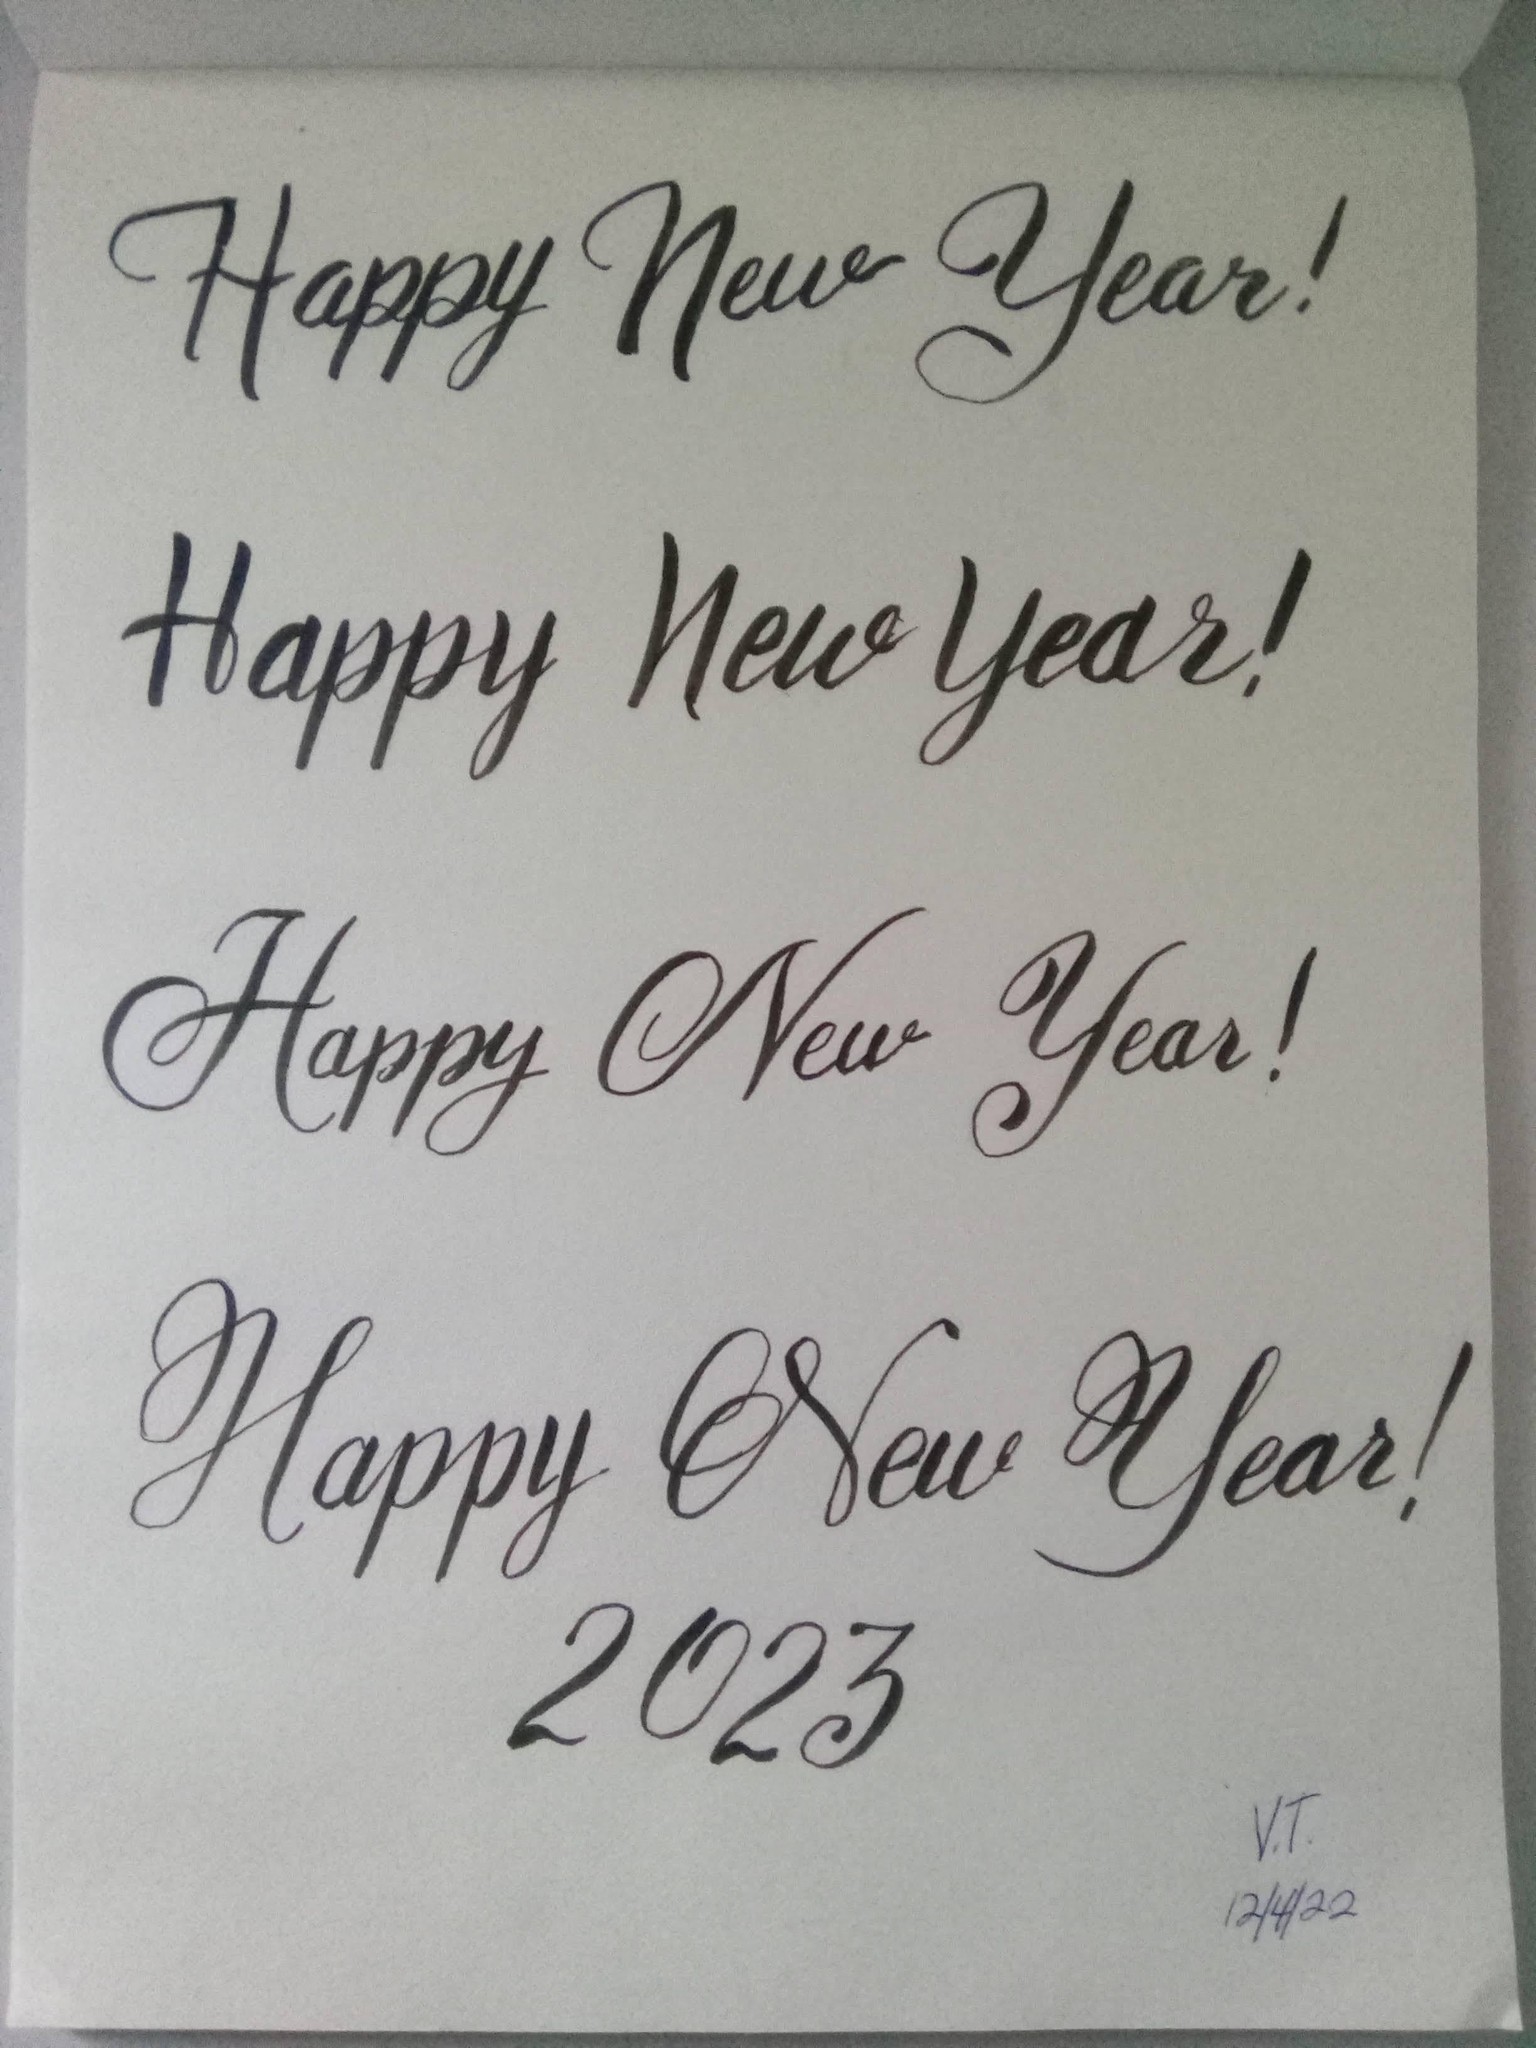 Happy New Year!
Happy New Year!
Happy New Year!
Happy New Year!
2023
V.T.
12/4/22